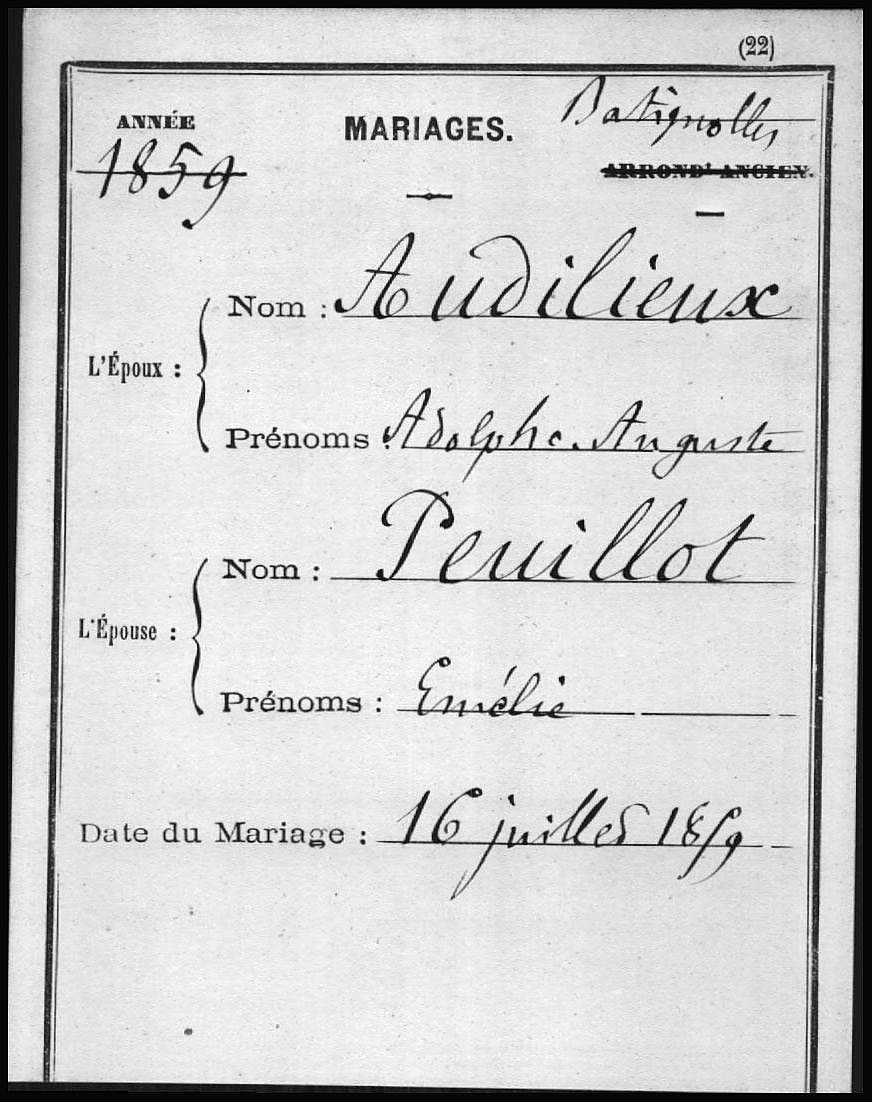 (22)
ANNÉE
1859
MARIAGES.
Batignolles
ARRONDt ANCIEN.
L'Époux :
Nom : Audilieux
Prénoms : Adolphe Auguste
L'Épouse :
Nom : Peuillot
Prénoms : Emélie
Date du Mariage : 16 juillet 1859